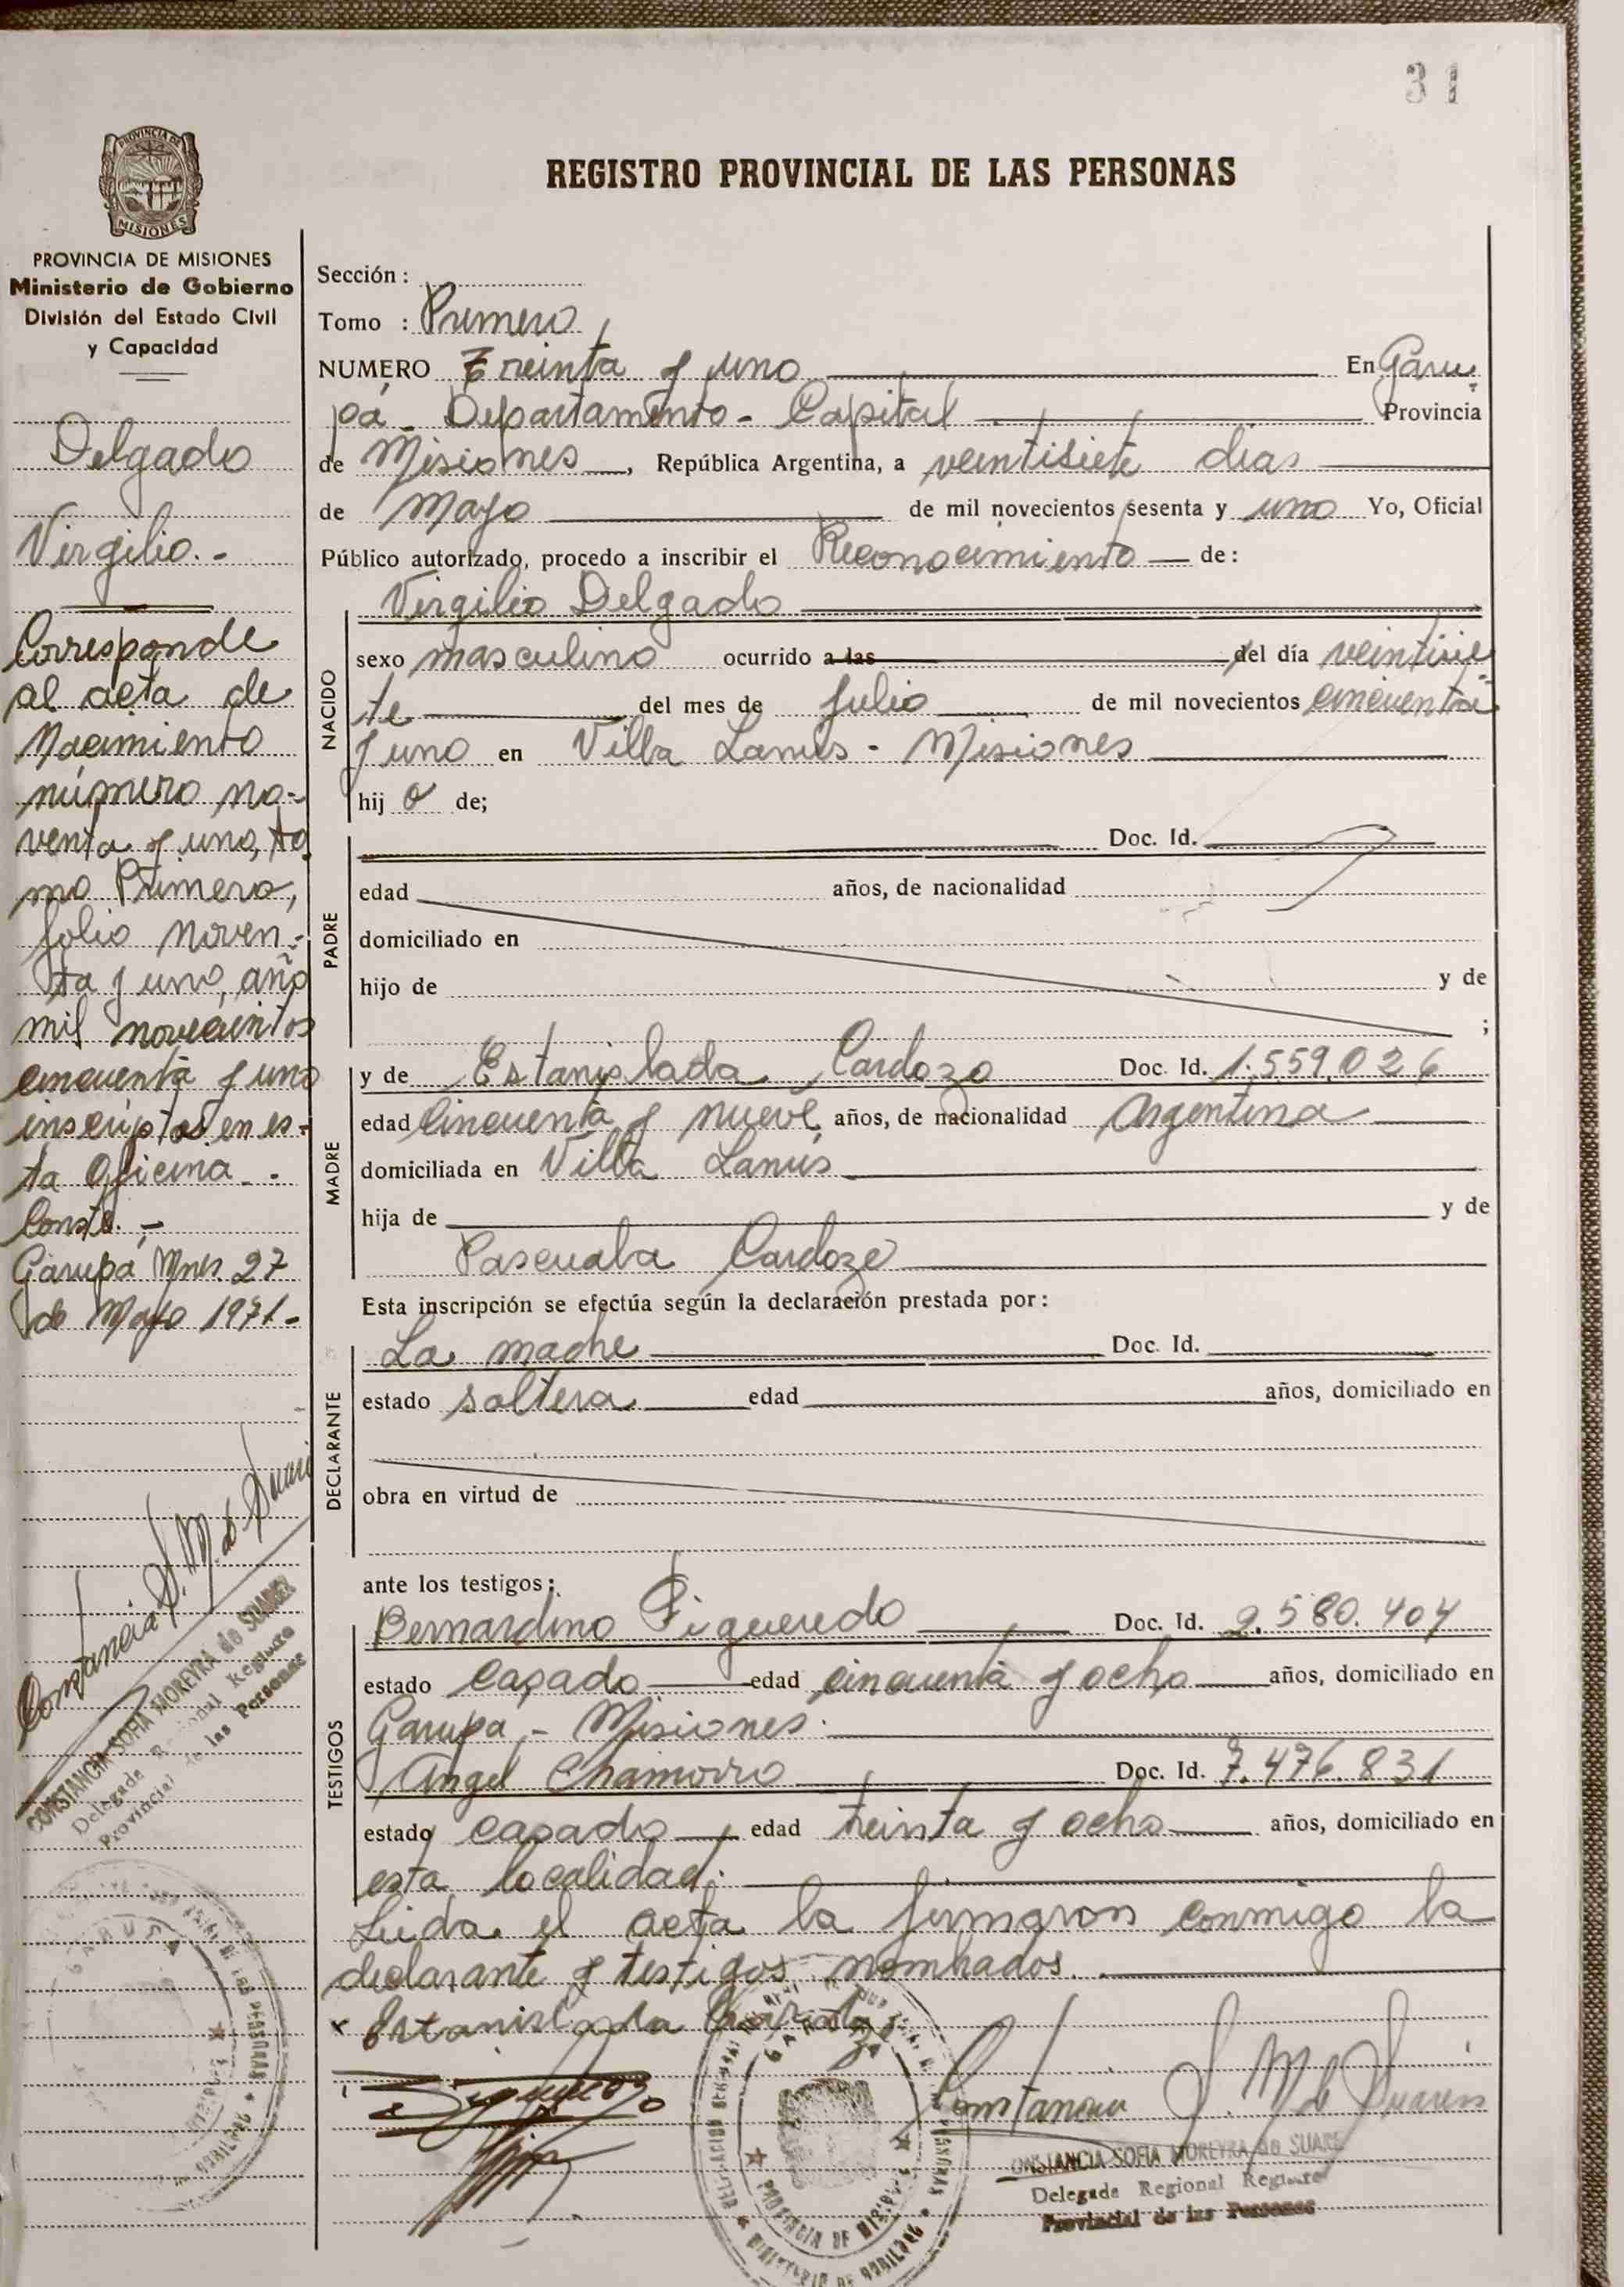 31
PROVINCIA DE
MISIONES
REGISTRO PROVINCIAL DE LAS PERSONAS
PROVINCIA DE MISIONES
Ministerio de Gobierno
División del Estado Civil
y Capacidad
Delgado
Virgilio.-
Corresponde
al acta de
Nacimiento
número no-
venta y uno, to
mo Primero,
folio noven-
ta y uno, año
mil novecientos
cincuenta y uno
inscriptos en es-
ta Oficina.-
Conste.-
Garupá Mnes. 27
de Mayo 1971-
Constancia S. M. de Suarez
CONSTANCIA SOFIA MOREYRA de SUAREZ
Delegada Regional Registro
Provincial de las Personas
GARUPA
Sección :
Tomo : Primero
NUMERO Treinta y uno En Garu
pá - Departamento - Capital Provincia
de Misiones, República Argentina, a veintisiete dias
de Mayo de mil novecientos sesenta y uno Yo, Oficial
Público autorizado, procedo a inscribir el Reconocimiento de:
Virgilio Delgado
NACIDO
sexo masculino ocurrido a las del día veintisie
te del mes de Julio de mil novecientos cincuenta
y uno en Villa Lanús - Misiones
hij o de;
PADRE
Doc. Id.
edad años, de nacionalidad
domiciliado en
hijo de y de
;
MADRE
y de Estanislada Cardozo Doc. Id. 1.559.026
edad Cincuenta y nueve años, de nacionalidad Argentina
domiciliada en Villa Lanús
hija de y de
Pascuala Cardozo
Esta inscripción se efectúa según la declaración prestada por:
DECLARANTE
La madre Doc. Id.
estado soltera edad años, domiciliado en
obra en virtud de
ante los testigos:
TESTIGOS
Bernardino Figueredo Doc. Id. 2.580.404
estado casado edad cincuenta y ocho años, domiciliado en
Garupá - Misiones.
Angel Chamorro Doc. Id. 7.476.831
estado casado edad treinta y ocho años, domiciliado en
esta localidad.
Leida el acta la firmaron conmigo la
declarante y testigos nombrados.
x Estanislada Cardozo
Constancia S. M. de Suarez
GARUPA
PROVINCIA DE MISIONES
CONSTANCIA SOFIA MOREYRA de SUARE
Delegada Regional Registro
Provincial de las Personas